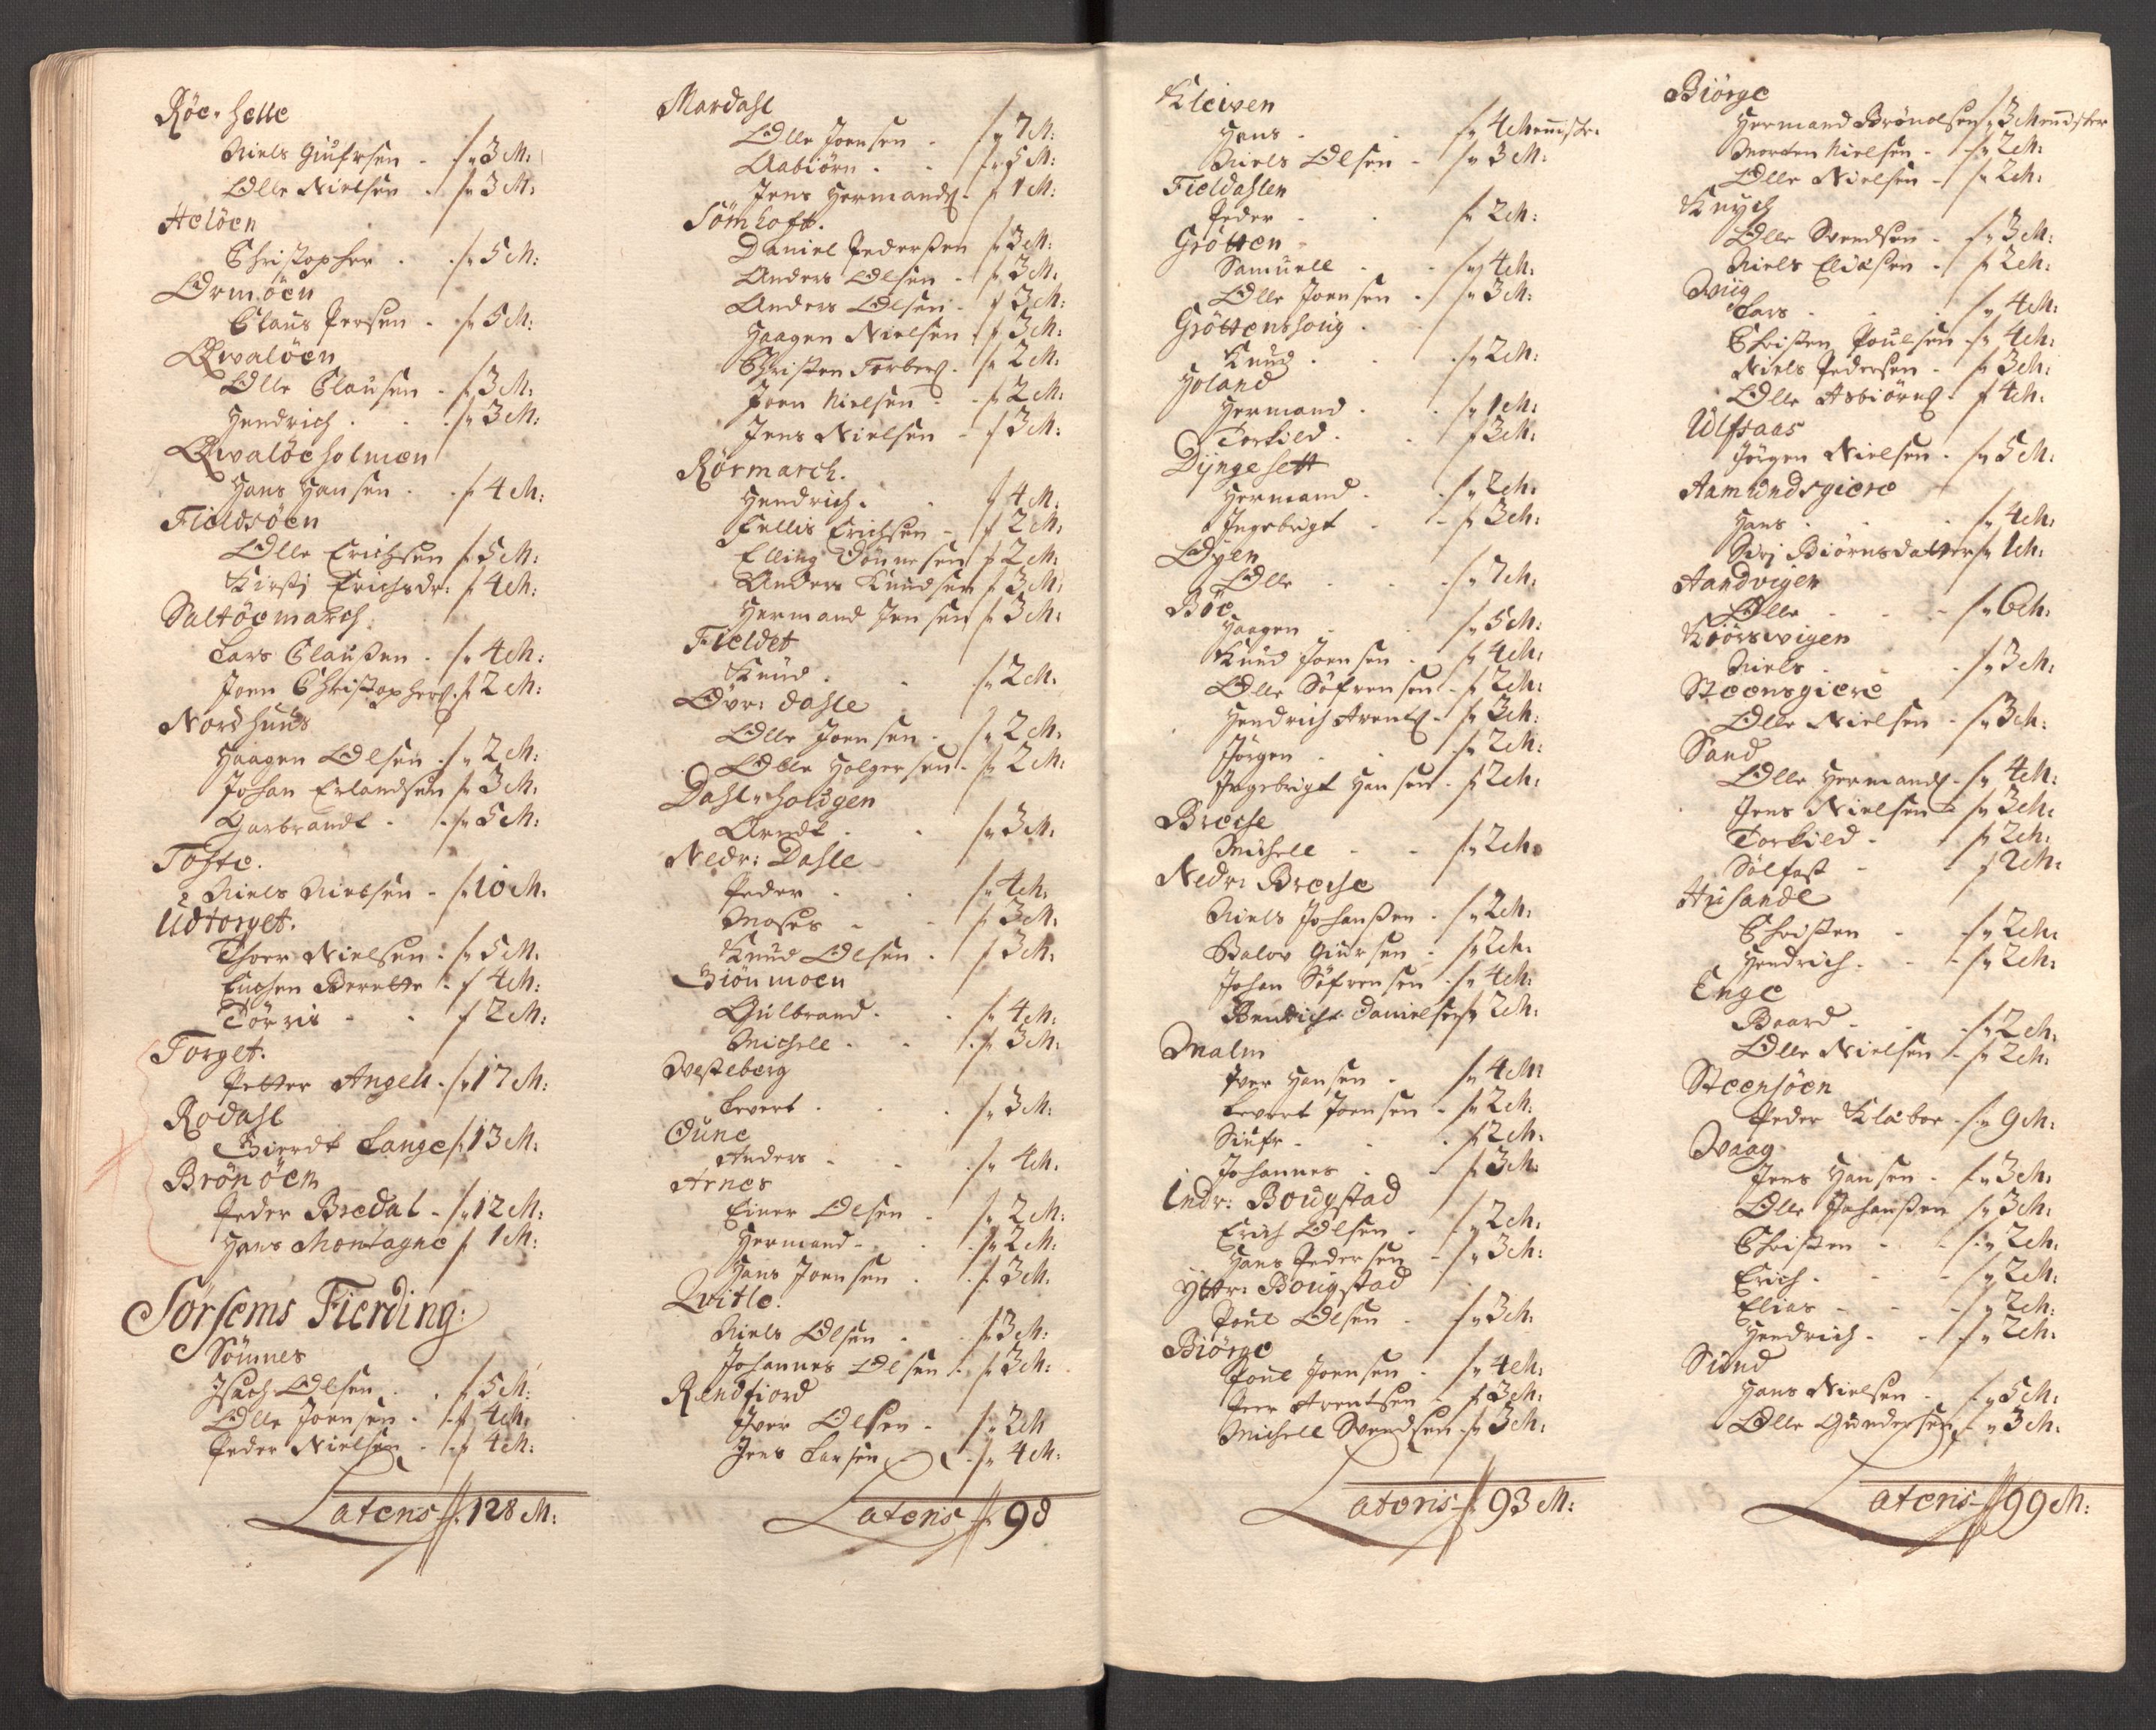 Röe, helle
Niels Giufrsen - f 3 M:
Olle Nielsen - f 3 M:
Helöen
Christopher . - f 5 M:
Ormöen
Claus Persen - f 5 M:
Qvalöen
Olle Clausen - f 3 M:
Hendrich . . f 3 M:
Qvalöeholmen
Hans Hansen . - f 4 M:
Fieldsöen
Olle Erichsen f 5 M:
Kirsti Erichsdr: f 4 M:
Saltöemarch.
Lars Claussen . f 4 M:
Joen Christophers. f 2 M:
Nordhuus
Haagen Olsen . f 2 M:
Johan Erlandsen f 3 M:
Garbrandt . - f 5 M:
Tofte.
Niels Nielsen - f 10 M:
Udtorget.
Thoer Nielsen : f 5 M:
Enchen Berette - f 4 M:
Törris - . f 2 M:
Torget.
Petter Angell - f 17 M:
Rodahl
Gierdt Lange f 13 M:
Brönöen
Peder Bredal - f 12 M:
Hans Montagne f 1 M:
Sörhems Fierding:
Sömnes
Isach Olsen . . f 5 M:
Olle Joensen . - f 4 M:
Peder Nielsen - f 4 M:
Lateris f 128 M:
Mardahl
Olle Joensen - f 7 M:
Aabiörn . . f 5 M:
Jens Hermands - f 1 M:
Sömhoft.
Daniel Pederssen f 3 M:
Anders Olsen - f 3 M:
Anders Olsen - f 3 M:
Haagen Nielsen f 3 M:
Christen Torbers. f 2 M:
Joen Nielsen - f 2 M:
Jens Nielsen - f 3 M:
Rörmarch.
Hendrich . . f 4 M:
Tellis Erichsen - f 2 M:
Elling Dönnesen f 2 M:
Anders Knudsen f 3 M:
Hermand Jensen f 3 M:
Fieldet
Knud . . f 2 M:
Övr: dahle
Olle Joensen - f 2 M:
Olle Holgersen - f 2 M:
Dahl, houigen
Arndt . . f 3 M:
Nedr: Dahle
Peder . . f 4 M:
Moses - - f 3 M:
Knud Olsen . f 3 M:
Biönmoen
Gulbrand . . f 4 M:
Michell - . f 3 M:
Westeberg
Levert . . f 3 M:
Oune
Anders - - f 4 M:
Arnes
Einer Olsen - f 2 M:
Hermand - . f 2 M:
Hans Joensen . f 3 M:
Qvitle.
Niels Olsen - f 3 M:
Johannes Olsen . f 3 M:
Rendfiord
Iver Olsen - f 2 M
Jens Larsen - f 4 M:
Lateris f 98
Kleiven
Hans . - f 4 M
Niels Olsen - f 3 M:
Fieldahlen
Peder - . f 2 M:
Grötten
Samuell - - f 4 M:
Olle Joensen . f 3 M:
Gröttenshoug .
Knud . . f 2 M:
Holand
Hermand . . f 1 M:
Torkild . . f 3 M:
Dyngesett
Hermand . . f 2 M:
Ingebrigt - - f 3 M:
Öyen
Olle . - f 7 M:
Böe
Haagen . . f 5 M:
Knud Joensen . f 4 M:
Olle Söfrensen - f 2 M:
Hendrich Arents - f 3 M:
Jörgen - . f 2 M:
Ingebrigt Hansen - f 2 M:
Breche
Michell - - f 2 M:
Nedr: Breche
Niels Johanssen . f 2 M:
Balov Giursen - f 2 M:
Johan Söfrensen . f 4 M:
Bendich Danielsen f 2 M:
Malm
Iver Hansen - f 4 M:
Levert Joensen - f 2 M:
Siufr - - f 2 M:
Johannes . - f 3 M:
Indr: Bougstad
Erich Olsen - f 2 M:
Hans Pedersen - f 3 M:
Yttr: Bougstad
Poul Olsen - f 3 M:
Biörge
Poul Joensen . f 4 M:
Peer Arentsen - f 3 M:
Michell Svendsen - f 3 M:
Lateris f 93 M:
Biörge
Hermand Brönolsen f 3 M
Morten Nielsen - f 2 M:
Olle Nielsen - f 2 M:
Knych
Olle Svendsen - f 3 M:
Niels Eliassen - f 2 M:
Wiig
Lars . . f 4 M:
Christen Poulsen - f 4 M:
Niels Pedersen - f 3 M:
Olle Asbiörns - f 4 M:
Ulfsaas
Jörgen Nielsen . f 5 M:
Aamundsgiere
Hans . . f 4 M:
Siri Biörnsdatter f 1 M:
Aandvigen
Olle - - f 6 M:
Kiörsvigen
Niels . . f 3 M:
Steensgiere
Olle Nielsen - f 3 M:
Sand
Olle Hermands - f 4 M:
Jens Nielsen - f 3 M:
Torkild - f 2 M:
Sölfast - f 2 M:
Husande
Christen - - f 2 M:
Hendrich . - f 2 M:
Enge
Baard - - f 2 M:
Olle Nielsen - f 2 M:
Steensöen
Peder Klaboe - f 9 M:
Waag
Jens Hansen - f 3 M:
Olle Johanssen f 3 M:
Christen - - f 2 M:
Erich . - f 2 M:
Elias - - f 2 M:
Hendrich - - f 2 M:
Sund
Hans Nielsen - f 5 M:
Olle Gundersen f 3 M:
Lateris f 99 M: